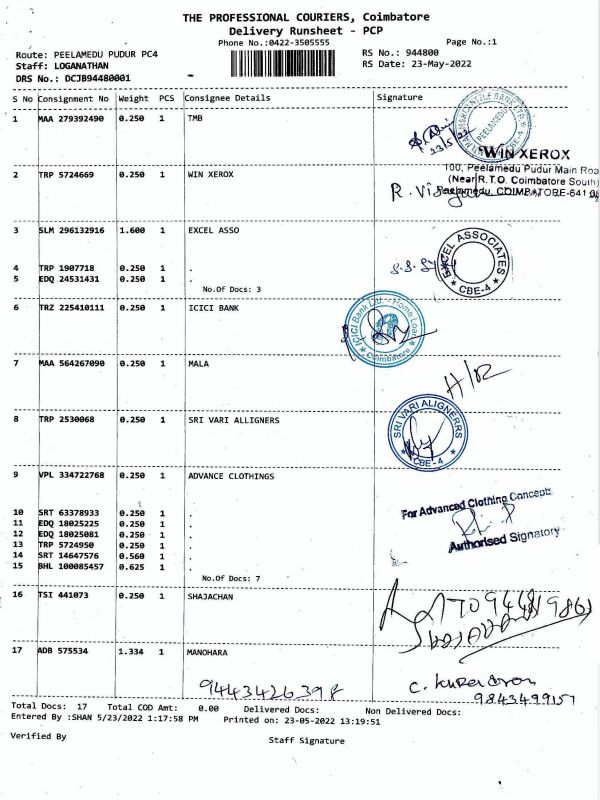 THE PROFESSIONAL COURIERS, Coimbatore
Delivery Runsheet - PCP
Phone No.:0422-3505555
Page No.:1
Route: PEELAMEDU PUDUR PC4
RS No.: 944800
Staff: LOGANATHAN
RS Date: 23-May-2022
DRS No.: DCJB94480001
S No Consignment No Weight PCS Consignee Details Signature
1 MAA 279392490 0.250 1 TMB
PEELAMEDU
CBE-4
23/5/22
WIN XEROX
2 TRP 5724669 0.250 1 WIN XEROX
100, Peelamedu Pudur Main Roa
(Near R.T.O. Coimbatore South)
Peelamedu, COIMBATORE-641 0
3 SLM 296132916 1.600 1 EXCEL ASSO
EXCEL ASSOCIATES
CBE-4
4 TRP 1907718 0.250 1 .
5 EDQ 24531431 0.250 1 .
No.Of Docs: 3
6 TRZ 225410111 0.250 1 ICICI BANK
ICICI Bank Ltd. - Home Loan
Coimbatore
7 MAA 564267090 0.250 1 MALA
8 TRP 2530068 0.250 1 SRI VARI ALLIGNERS
SRI VARI ALIGNERRS
CBE-4
9 VPL 334722768 0.250 1 ADVANCE CLOTHINGS
For Advanced Clothing Concepts
10 SRT 63378933 0.250 1 .
11 EDQ 18025225 0.250 1 .
12 EDQ 18025081 0.250 1 .
13 TRP 5724950 0.250 1 .
Authorised Signatory
14 SRT 14647576 0.560 1 .
15 BHL 100085457 0.625 1 .
No.Of Docs: 7
16 TSI 441073 0.250 1 SHAJACHAN
17 ADB 575534 1.334 1 MANOHARA
9843499157
Total Docs: 17 Total COD Amt: 0.00 Delivered Docs: Non Delivered Docs:
Entered By :SHAN 5/23/2022 1:17:58 PM Printed on: 23-05-2022 13:19:51
Verified By
Staff Signature